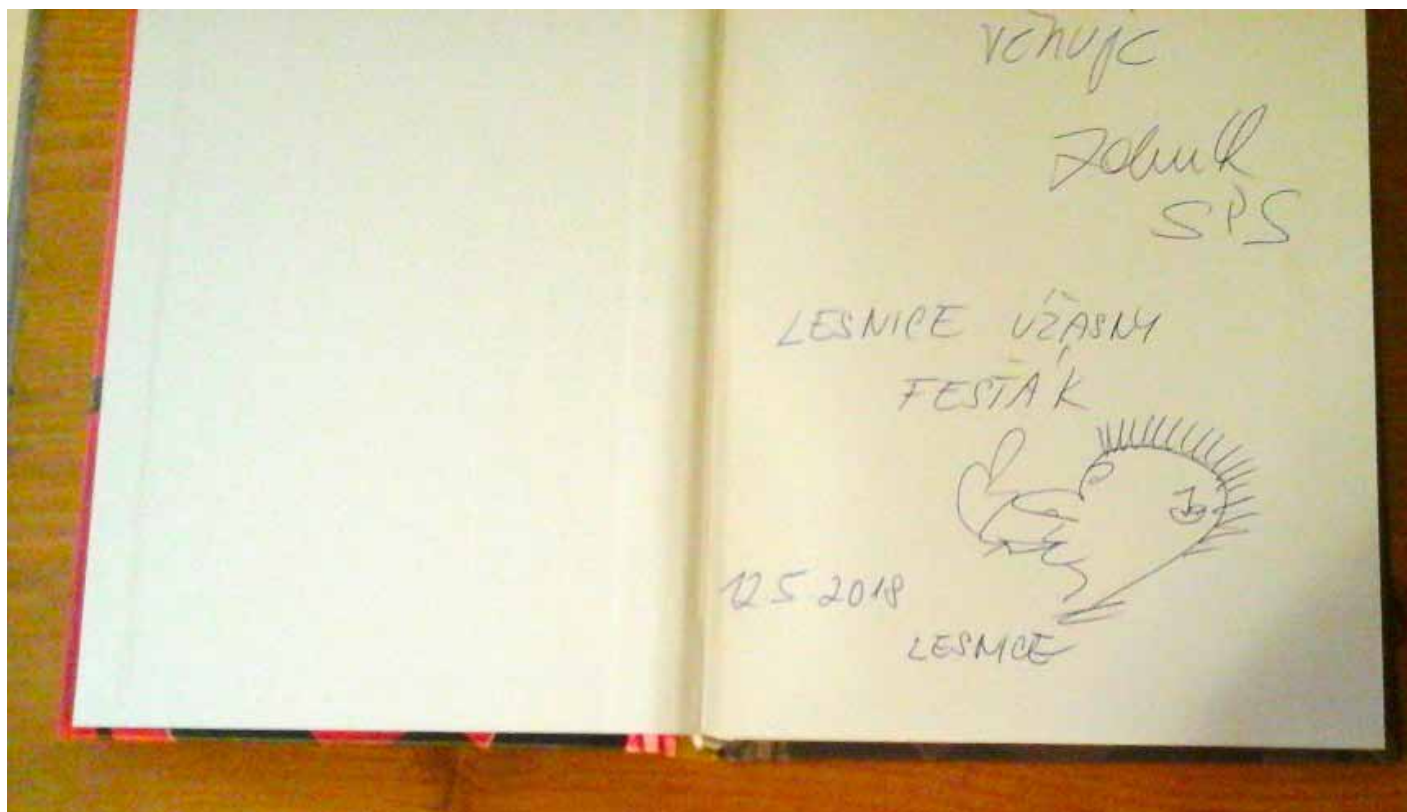 věnuje
SPS
LESNICE ÚŽASNÝ
FESŤÁK
12.5.2018
LESNICE